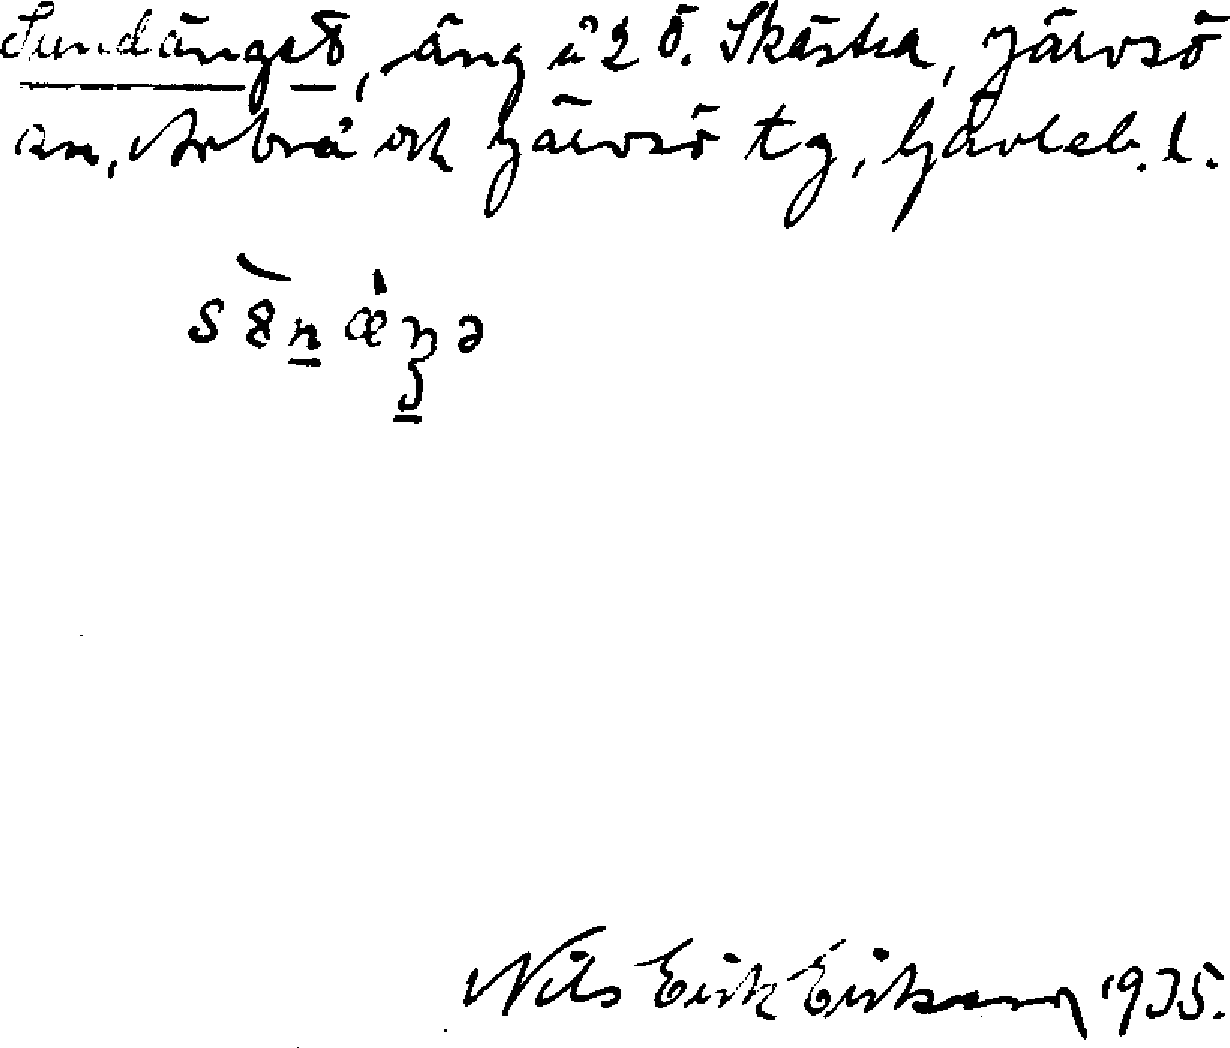 Sundänget, äng i 2 Ö. Skästra, Järvsö
sn, Arbrå och Järvsö tg, Gävleb. l.
s8næŋə
Nils Erik Eriksson 1935.